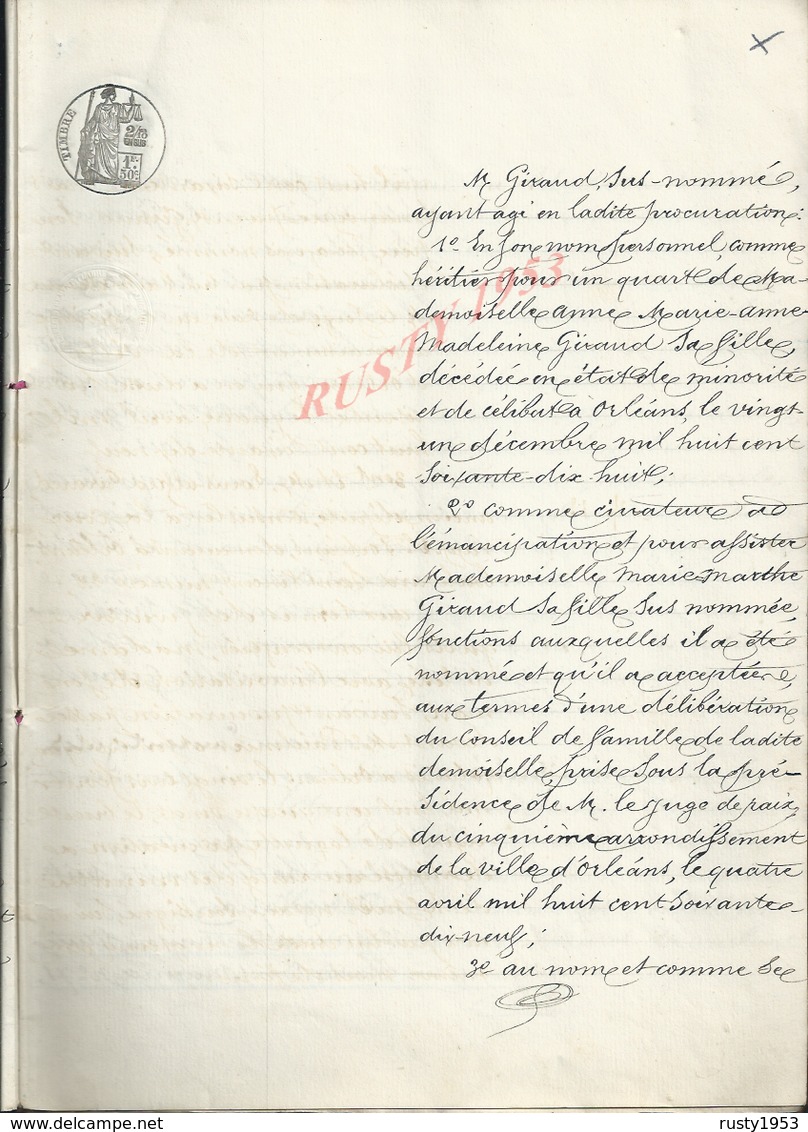 TIMBRE
2/10
EN SUS
1F.
50c.
M Giraud, Sus-nommé,
ayant agi en ladite procuration:
1º En son nom personnel, comme
héritier pour un quart de Ma-
demoiselle anne Marie-anne-
Madeleine Giraud Sa fille,
décédée en état de minorité
et de célibat à Orléans, le vingt-
un décembre mil huit cent
Soixante-dix-huit;
2º comme curateur ad
l'émancipation et pour assister
Mademoiselle Marie-Marthe
Giraud Sa fille Sus nommée,
fonctions auxquelles il a été
nommé et qu'il a acceptées,
aux termes d'une délibération
du Conseil de famille de ladite
demoiselle, prise Sous la pré-
Sidence de M. le Juge de paix,
du cinquième arrondissement
de la ville d'Orléans, le quatre
avril mil huit cent Soixante-
dix-neuf;
3º au nom et comme Se
RUSTY 1953
delcampe.net
rusty1953